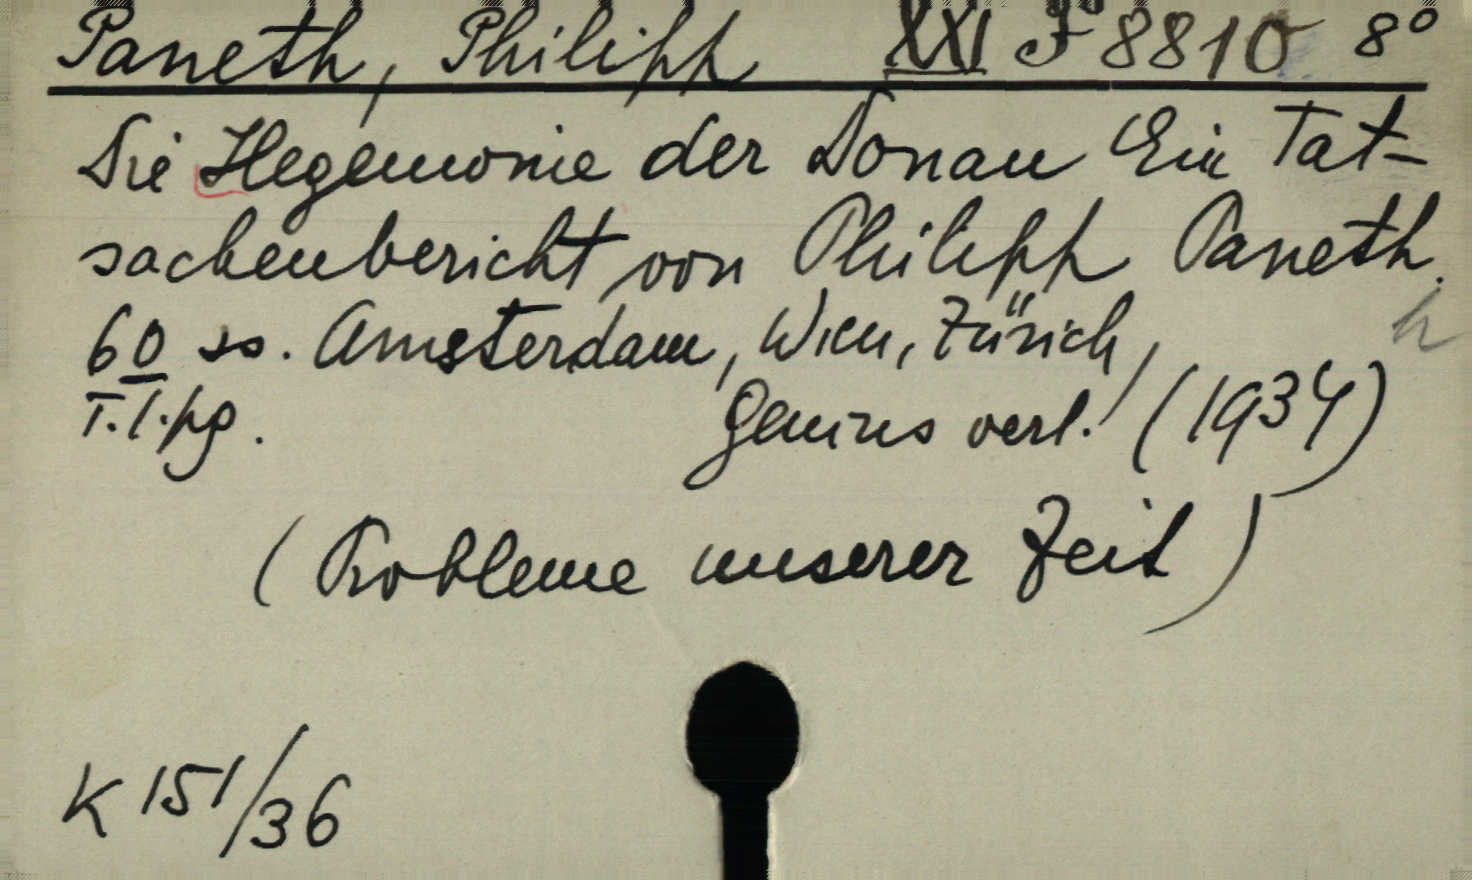 Paneth, Philipp XXI F 8810 8°
Die Hegemonie der Donau Ein Tat-
sachenbericht von Philipp Paneth.
60 ss. Amsterdam, Wien, Zürich,
T. 1. pg. Genius verl. (1934)
(Probleme unserer Zeit)
K 151/36